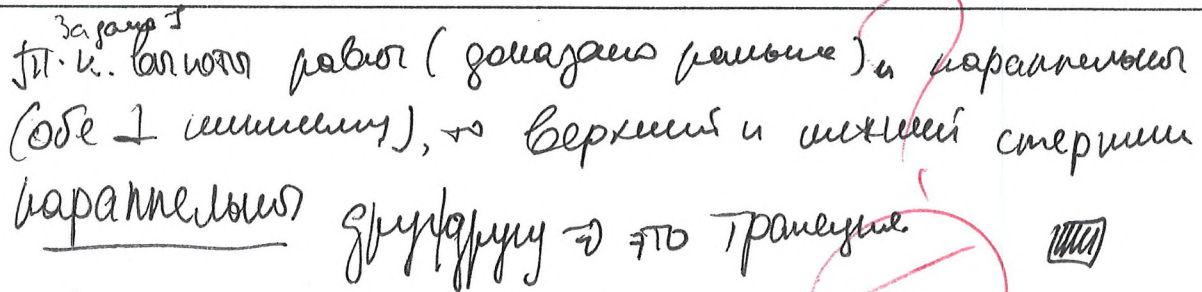 Задача 1
Т.к. высоты равны (доказано раньше) и параллельны
(обе ⊥ нижнему), то верхний и нижний стержни
параллельны друг другу ⇒ это трапеция.